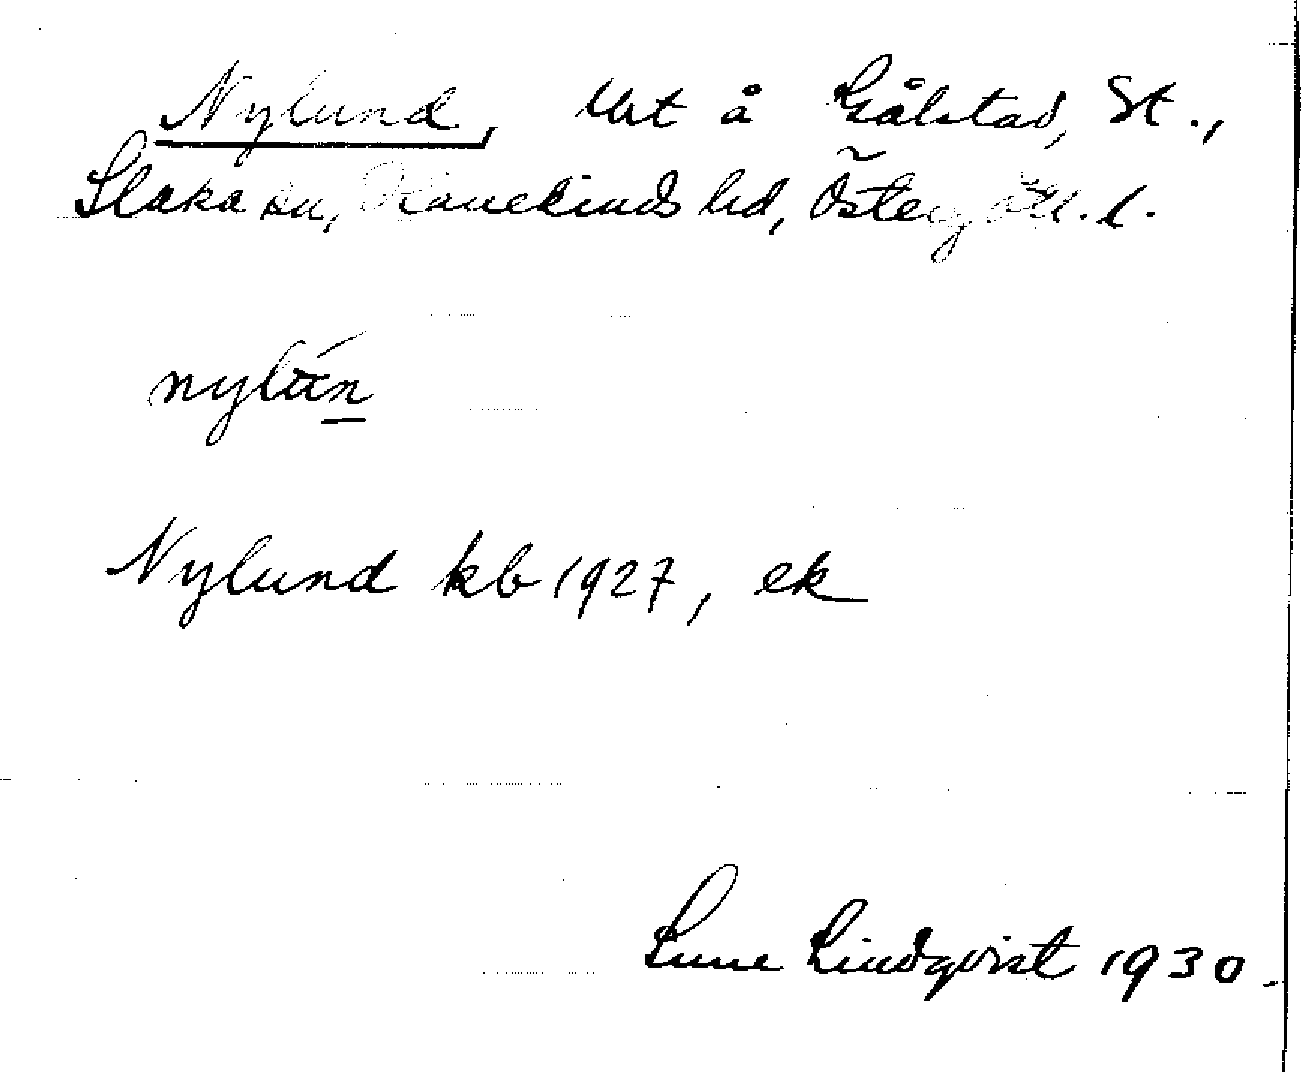 Nylund, Utt å Gälstad, St.,
Slaka sn, Hanekinds hd, Östergötl. l.
nylún
Nylund kb 1927, ek
Sune Lindqvist 1930